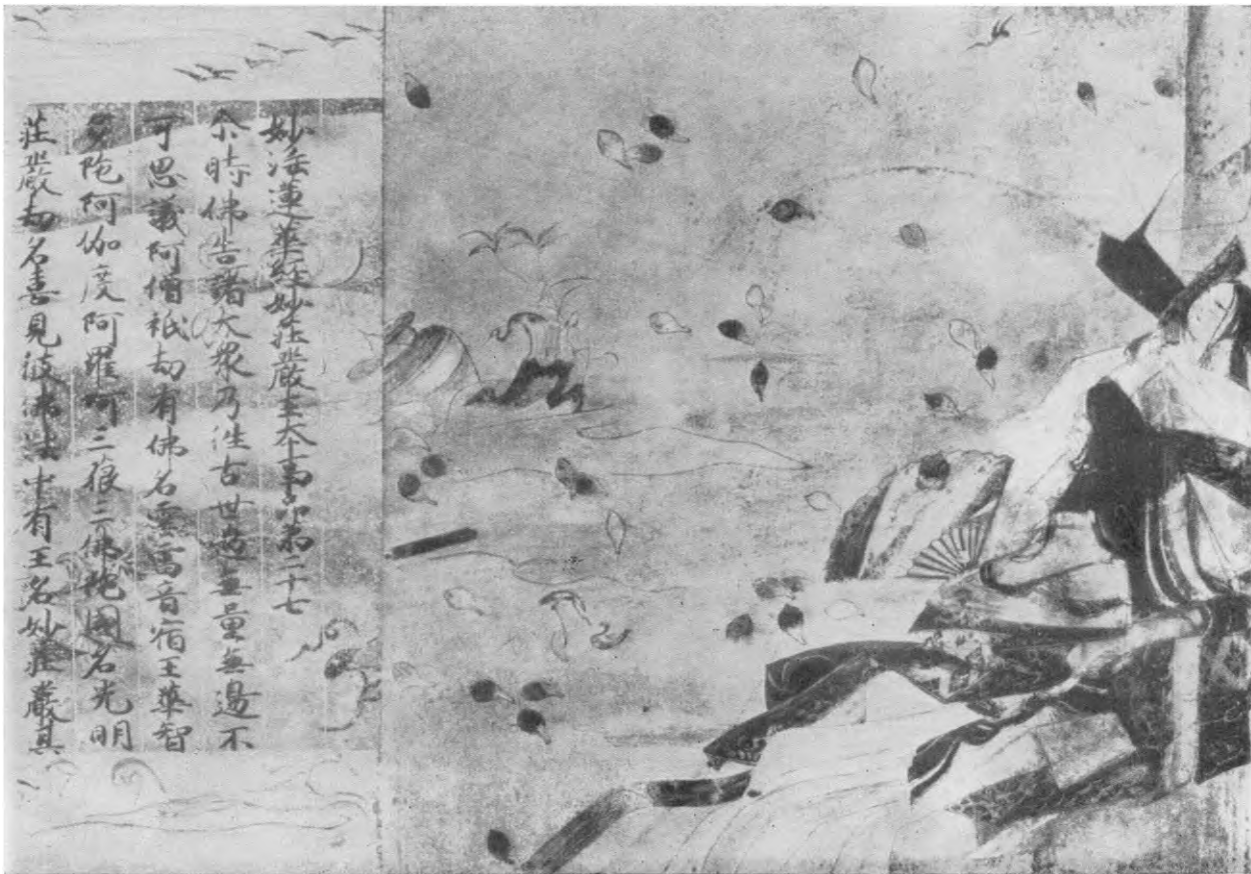 妙法蓮華経妙荘嚴王本事品第二十七
尒時佛告諸大衆乃往古世過無量無邊不
可思議阿僧祇劫有佛名雲雷音宿王華智
多陀阿伽度阿羅呵三藐三佛陀國名光明
荘嚴劫名喜見彼佛法中有王名妙荘嚴其